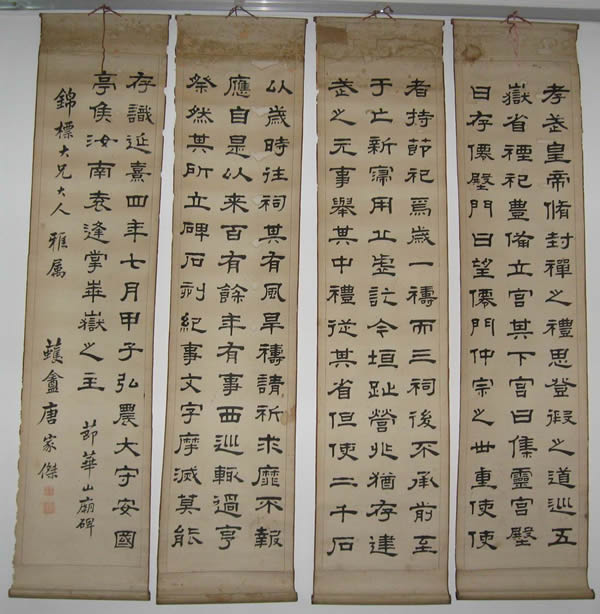 孝武皇帝脩封禪之禮思登徦之道巡五
嶽省禋祀豊備立宮其下宮曰集靈宮壂
曰存僊壂門曰望僊門仲宗之世重使使
者持節祀焉歲一禱而三祠後不承前至
于亡新寖用丘虛訖今垣趾營兆猶存建
武之元事舉其中禮從其省但使二千石
以歲時往祠其有風旱禱請祈求靡不報
應自是以来百有餘年有事西巡輒過亨
祭然其所立碑石刻紀事文字摩滅莫能
存識延熹四年七月甲子弘農大守安國
亭侯汝南袁逢掌崋嶽之主 節華山廟碑
錦標大兄大人雅属 蠖盦唐家傑